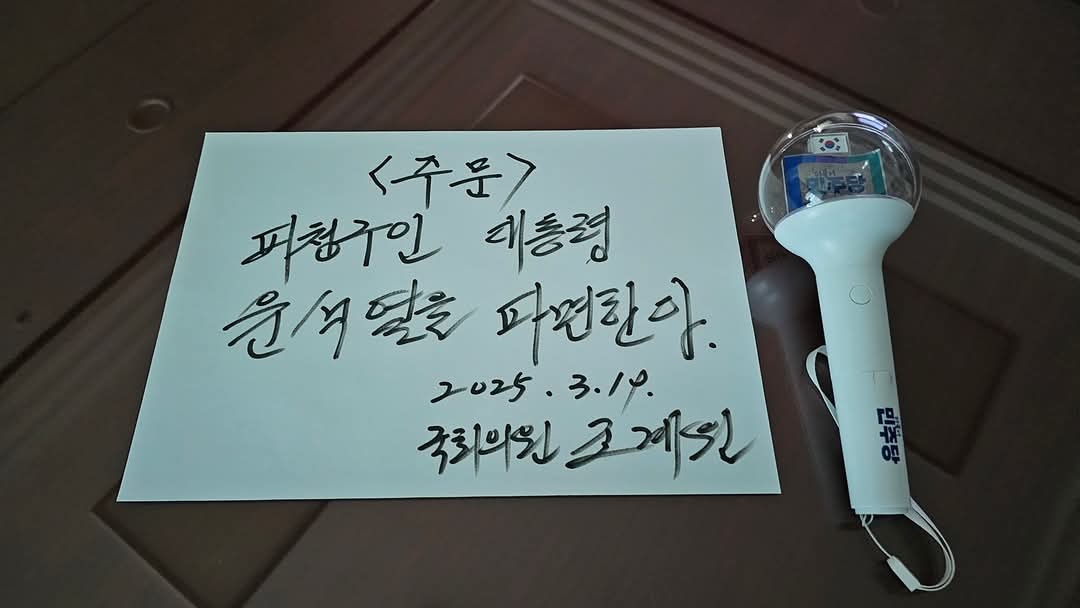 <주문>
피청구인 대통령
윤석열을 파면한다.
2025. 3. 14.
국회의원 조계원
민주당
민주당